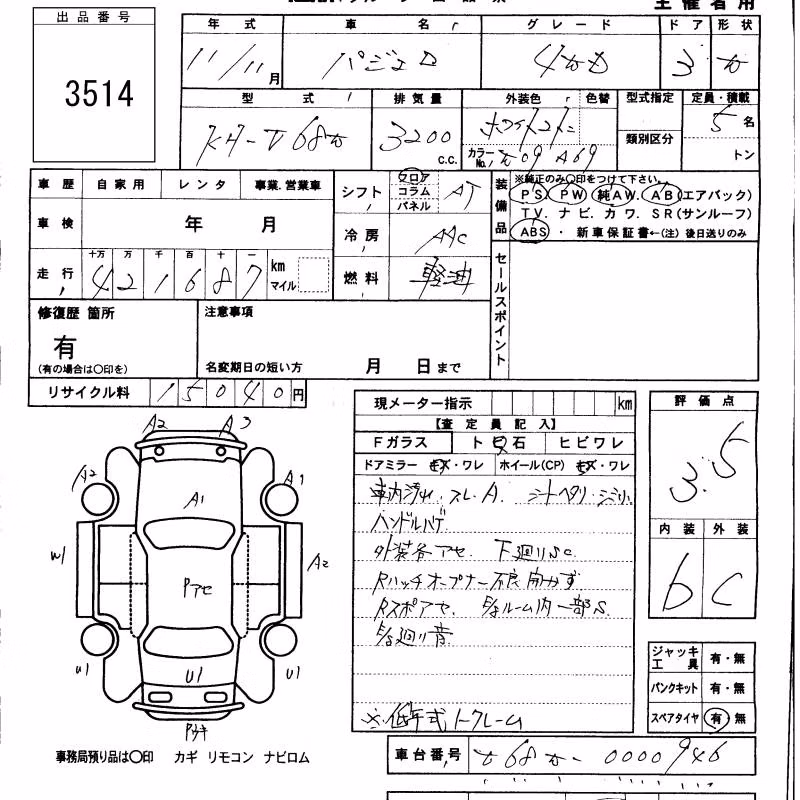 主催者用
出品番号
3514
年式 車名 グレード ドア 形状
11/11月 パジェロ 4WD 3 W
型式 排気量 外装色 色替 型式指定 定員・積載
KH-V68W 3200 c.c. 5名
類別区分
カラーNo. A69
トン
車歴 自家用 レンタ 事業.営業車
シフト フロア コラム パネル AT
装備品
※純正のみ○印をつけて下さい。
PS PW 純AW. AB(エアバック)
TV. ナビ. カワ. SR(サンルーフ)
ABS ・ 新車保証書←(注) 後日送りのみ
車検 年 月
冷房 AAC
走行 十万 万 千 百 十 一
421687 km マイル
燃料 軽油
セールスポイント
修復歴 箇所
有
(有の場合は○印を)
注意事項
名変期日の短い方 月 日まで
リサイクル料 15040円
現メーター指示 km
【査定員記入】
Fガラス トビ石 ヒビワレ
ドアミラー キズ・ワレ ホイール(CP) キズ・ワレ
車内汚れ. スレ. A. シートヘタリ・シミ
ハンドルハゲ
外装各アセ. 下廻りSC.
Rハッチオープナー不良 開かず
Rスポアセ. E/gルーム内一部S.
E/g廻り音
※低年式 1-クレーム
評価点
3.5
内装 外装
b C
ジャッキ 工具 有・無
パンクキット 有・無
スペアタイヤ 有・無
A2 A3
A2 A1 A1
W1 Pアセ A2
U1 U1 U1
Pウキ
事務局預り品は○印 カギ リモコン ナビロム
車台番号 V68W-0000946